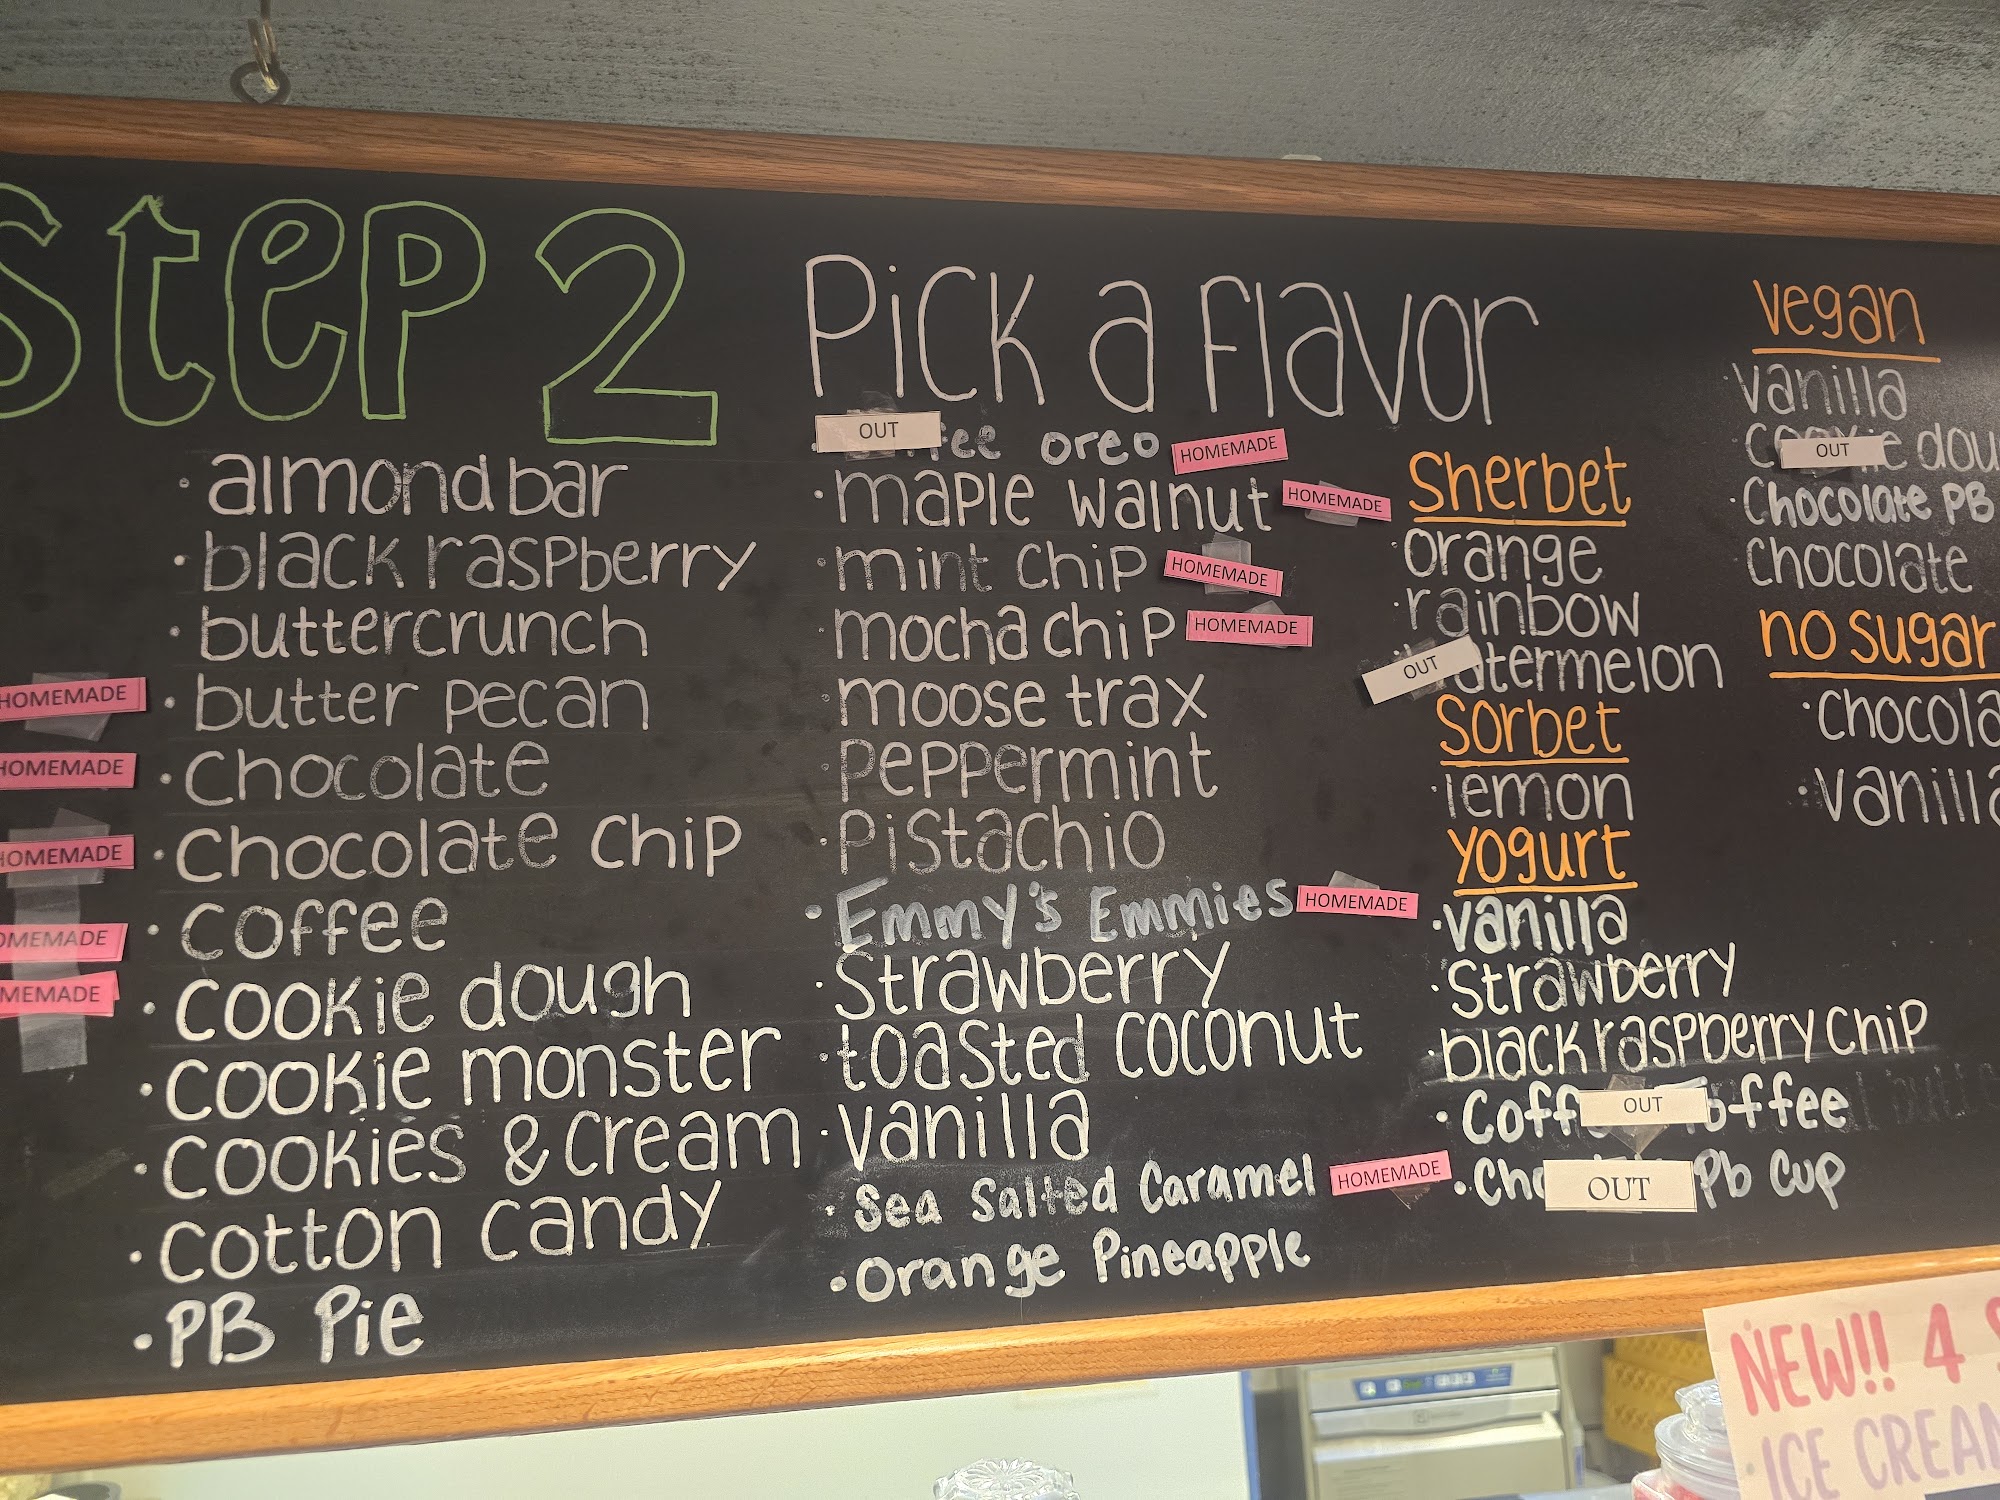 Step 2
Pick a flavor
HOMEMADE
HOMEMADE
HOMEMADE
· almond bar
· black raspberry
· buttercrunch
· butter pecan
· chocolate
· chocolate chip
· coffee
· cookie dough
· cookie monster
· cookies & cream
· cotton candy
· PB Pie
OUT
oreo HOMEMADE
· maple walnut HOMEMADE
· mint chip HOMEMADE
· mocha chip HOMEMADE
· moose trax
· peppermint
· pistachio
· Emmy's Emmies HOMEMADE
· strawberry
· toasted coconut
· vanilla
· Sea Salted Caramel HOMEMADE
· Orange Pineapple
Sherbet
· orange
· rainbow
OUT
Sorbet
· lemon
Yogurt
· vanilla
· strawberry
· black raspberry chip
OUT
OUT Pb Cup
vegan
· vanilla
OUT
· Chocolate PB
chocolate
no sugar
· vanilla
NEW!! 4
ICE